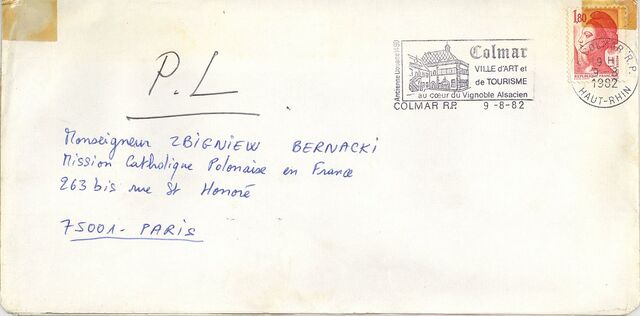 Ancienne Douane 1480
Colmar
VILLE d'ART et
de TOURISME
au cœur du Vignoble Alsacien
COLMAR R.P. 9-8-82
1,80
COLMAR R.P.
9 H
1982
HAUT-RHIN
P.L
Monseigneur ZBIGNIEW BERNACKI
Mission Catholique Polonaise en France
263 bis rue St Honoré
75001-PARIS